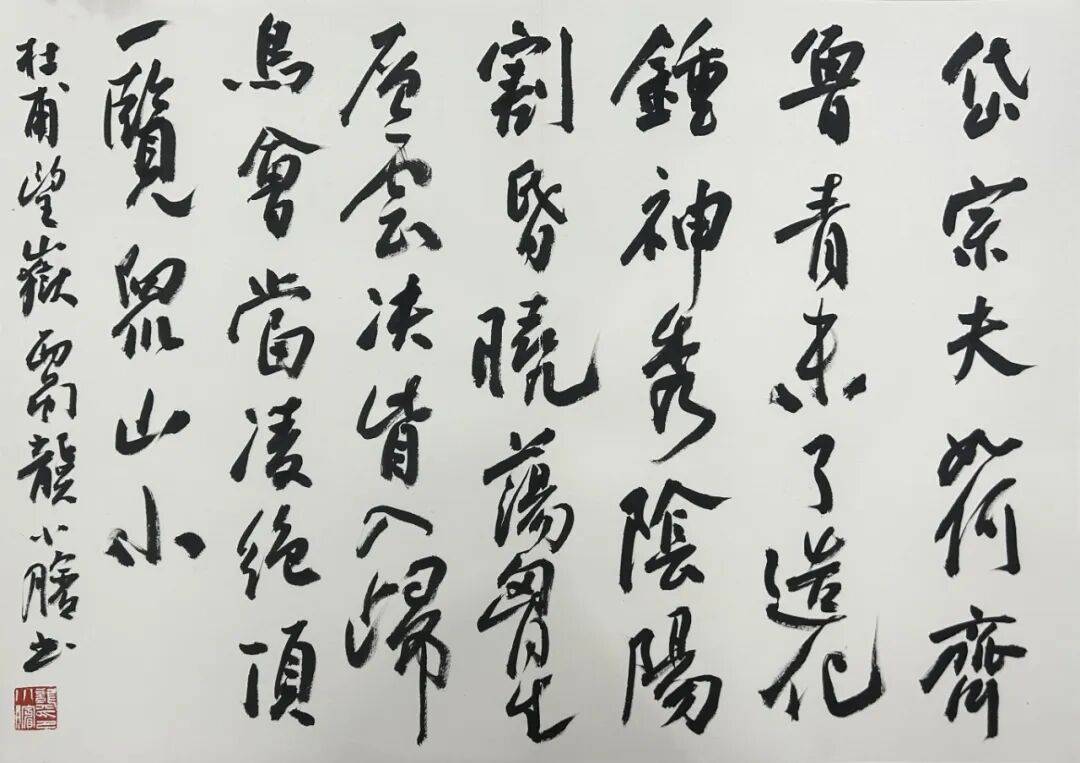 岱宗夫如何齊
魯青未了造化
鍾神秀陰陽
割昏曉蕩胷生
層雲决眥入歸
鳥會當凌絕頂
一覽眾山小
杜甫望嶽 西蜀龔小書